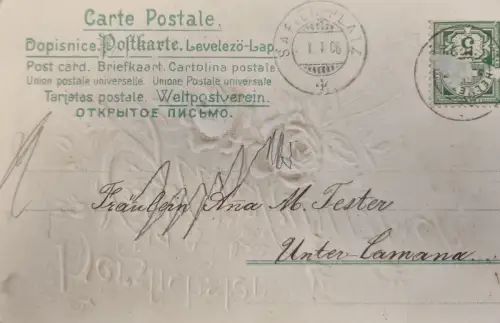 Carte Postale.
Dopisnice. Postkarte. Levelező-Lap.
Post card. Briefkaart. Cartolina postale.
Union postale universelle. Unione Postale universale
Tarjetas postale. Weltpostverein.
ОТКРЫТОЕ ПИСЬМО.
SAFIEN-PLATZ
1 I 06
5
Fräulein Ana M. Tester
Unter-Camana